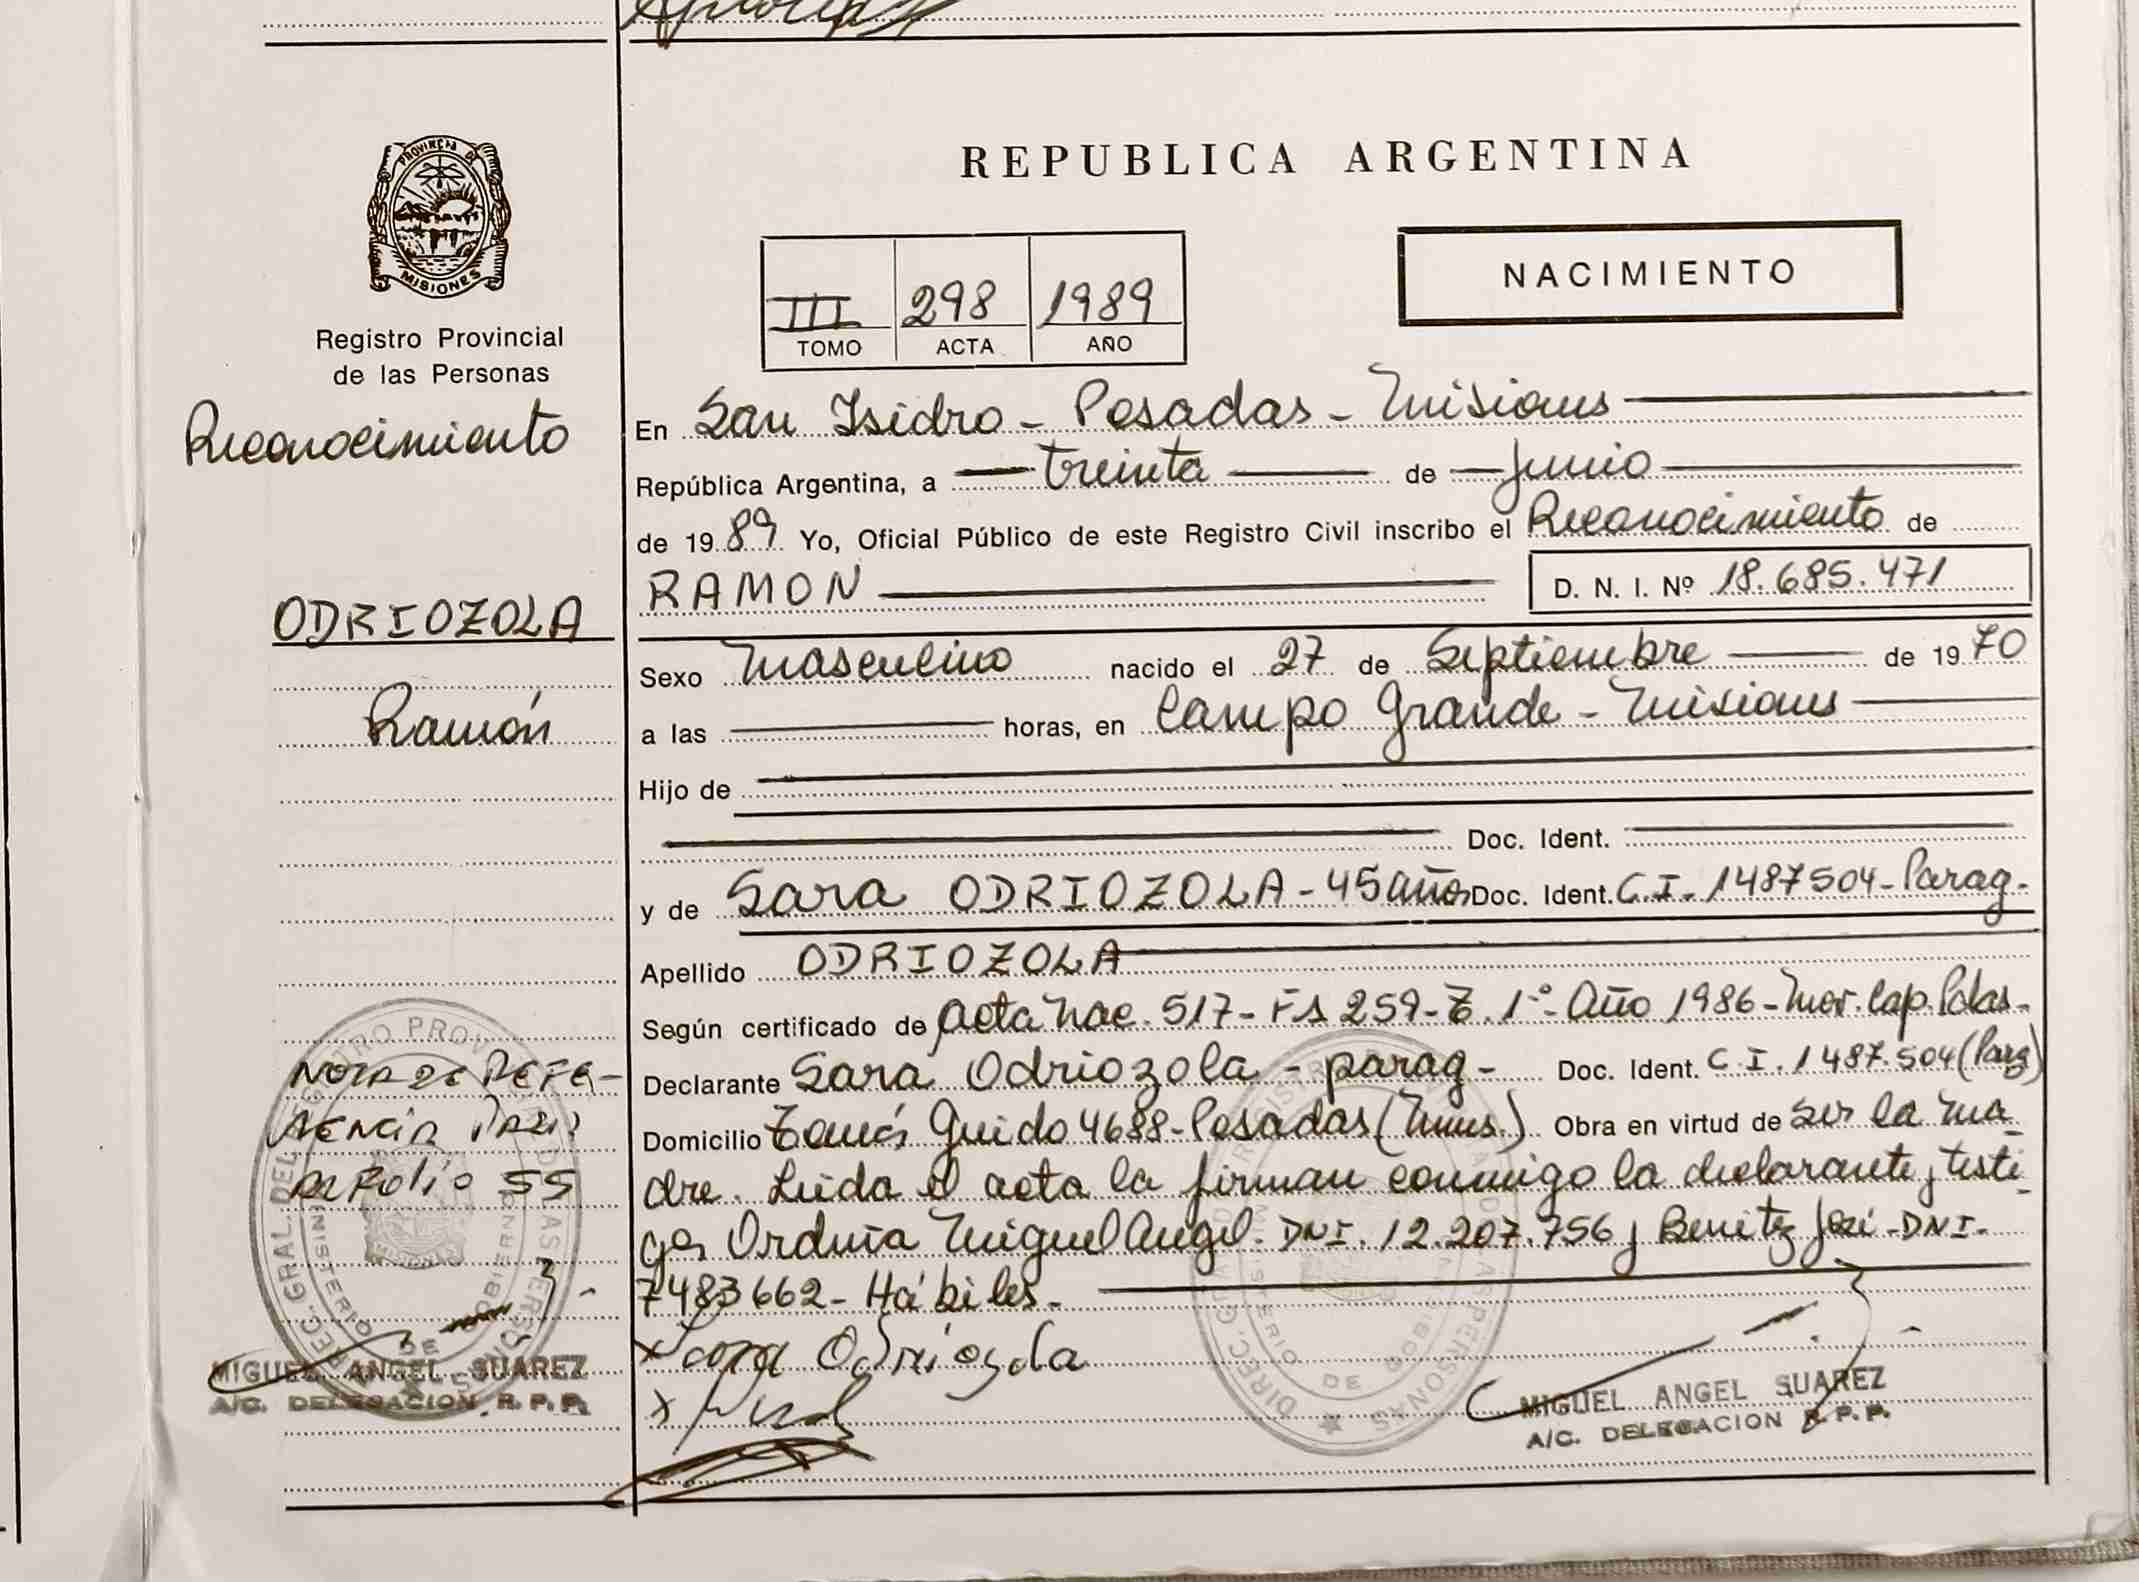 PROVINCIA DE
MISIONES
Registro Provincial
de las Personas
Reconocimiento
ODRIOZOLA
Ramón
NOTA DE REFE-
RENCIA
DE FOLIO 55
DIREC. GRAL. DEL REGISTRO PROVINCIAL DE LAS PERSONAS
MINISTERIO DE GOBIERNO
MIGUEL ANGEL SUAREZ
A/C. DELEGACION R. P. P.
REPUBLICA ARGENTINA
III 298 1989
TOMO ACTA AÑO
NACIMIENTO
En San Isidro - Posadas - Misiones
República Argentina, a treinta de Junio
de 1989 Yo, Oficial Público de este Registro Civil inscribo el Reconocimiento de
RAMON D. N. I. Nº 18.685.471
Sexo Masculino nacido el 27 de Septiembre de 1970
a las horas, en Campo Grande - Misiones
Hijo de
Doc. Ident.
y de Sara ODRIOZOLA - 45 años Doc. Ident. C.I. 1487504 - Parag.
Apellido ODRIOZOLA
Según certificado de Acta Nac. 517 - Fs 259 - T. 1º - Año 1986 - Cap. Pdas -
Declarante Sara Odriozola - parag - Doc. Ident. C.I. 1487.504 (Parg)
Domicilio Tomás Guido 4688 - Posadas (Mnes.) Obra en virtud de ser la ma
dre. Leída el acta la firman conmigo la declarante y testi
gos Orduña Miguel Angel. DNI. 12.207.756 y Benitez José - DNI -
7483662 - Hábiles -
x Sara Odriozola
x
DIREC. GRAL. DEL REGISTRO PROVINCIAL DE LAS PERSONAS
MINISTERIO DE GOBIERNO
MIGUEL ANGEL SUAREZ
A/C. DELEGACION R. P. P.